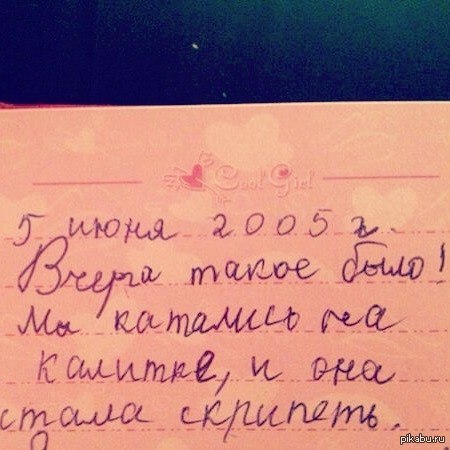 Cool Girl
5 июня 2005 г.
Вчера такое было!
Мы катались на
калитке, и она
стала скрипеть.
pikabu.ru